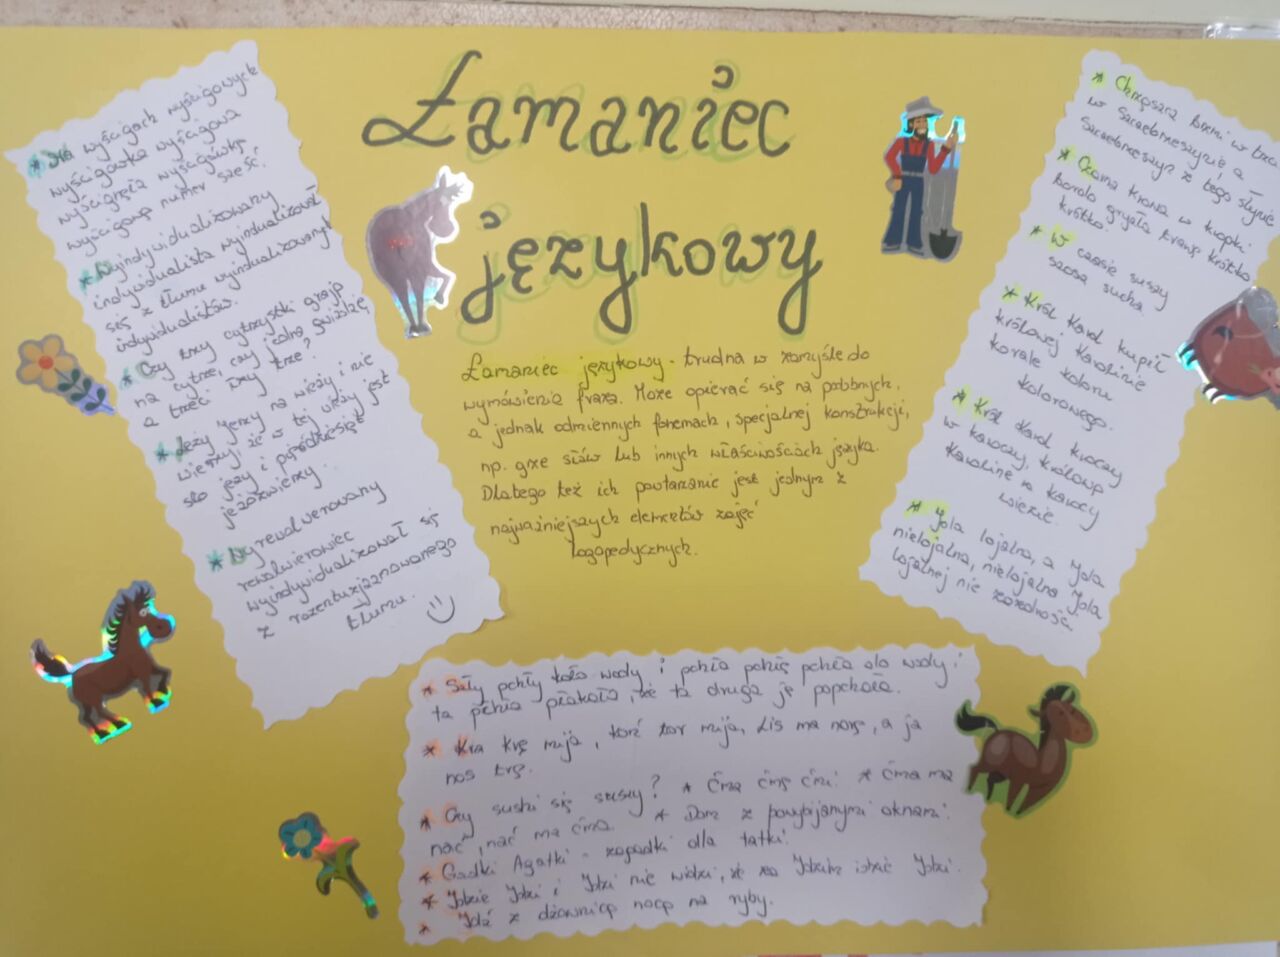 Łamaniec
językowy
Łamaniec językowy - trudna w zamyśle do
wymówienia fraza. Może opierać się na podobnych,
a jednak odmiennych fonemach, specjalnej konstrukcji,
np. grze słów lub innych właściwościach języka.
Dlatego też ich powtarzanie jest jednym z
najważniejszych elementów zajęć
logopedycznych.
* Na wyścigach wyścigowych
wyścigówka wyścigowa
wyścignęła wyścigówkę
wyścigową numer sześć.
* Wyindywidualizowany
indywidualista wyindualizował
się z tłumu wyindualizowanych
indywidualistów.
* Czy trzy cytrzystki grają
na cytrze, czy jedna gwiżdże,
a trzeci łzy trze?
* Jeży Jerzy na wieży i nie
wierzy, że w tej wieży jest
sto jeży i pięćdziesiąt
jeżozwierzy.
* Wyrewolwerowany
rewolwerowiec
wyindywidualizował się
z rozentuzjazmowanego
tłumu.
* Chrząszcz brzmi w trzci
w Szczebrzeszynie a
Szczebrzeszyn z tego słynie
* Czarna krowa w kropki
bordo gryzła trawę krótko
krótko.
* W czasie suszy
szosa sucha
* Król Karol kupił
królowej Karolinie
korale koloru
koralowego.
* Król Karol kroczy
w karocy, królową
Karolinę w karocy
wiezie.
* Jola lojalna, a Jola
nielojalna, nielojalna Jola
lojalnej nie zazdrości
* Szły pchły koło wody i pchła pchłę pchła do wody i
ta pchła płakała, że ta druga ją popchała.
* Kra krę mija, tor mija, Lis ma norę, a ja
nos trę.
* Czy sushi się suszy? * Ćma ćmę ćmi. * Ćma ma
nać, nać ma ćma. * Dom z powybijanymi oknami.
* Gadki Agatki - zagadki dla tatki.
* Idzie Idzi i Idzi nie widzi, że za Idzim idzie Idzi.
* Idź z dżownicą nocą na ryby.